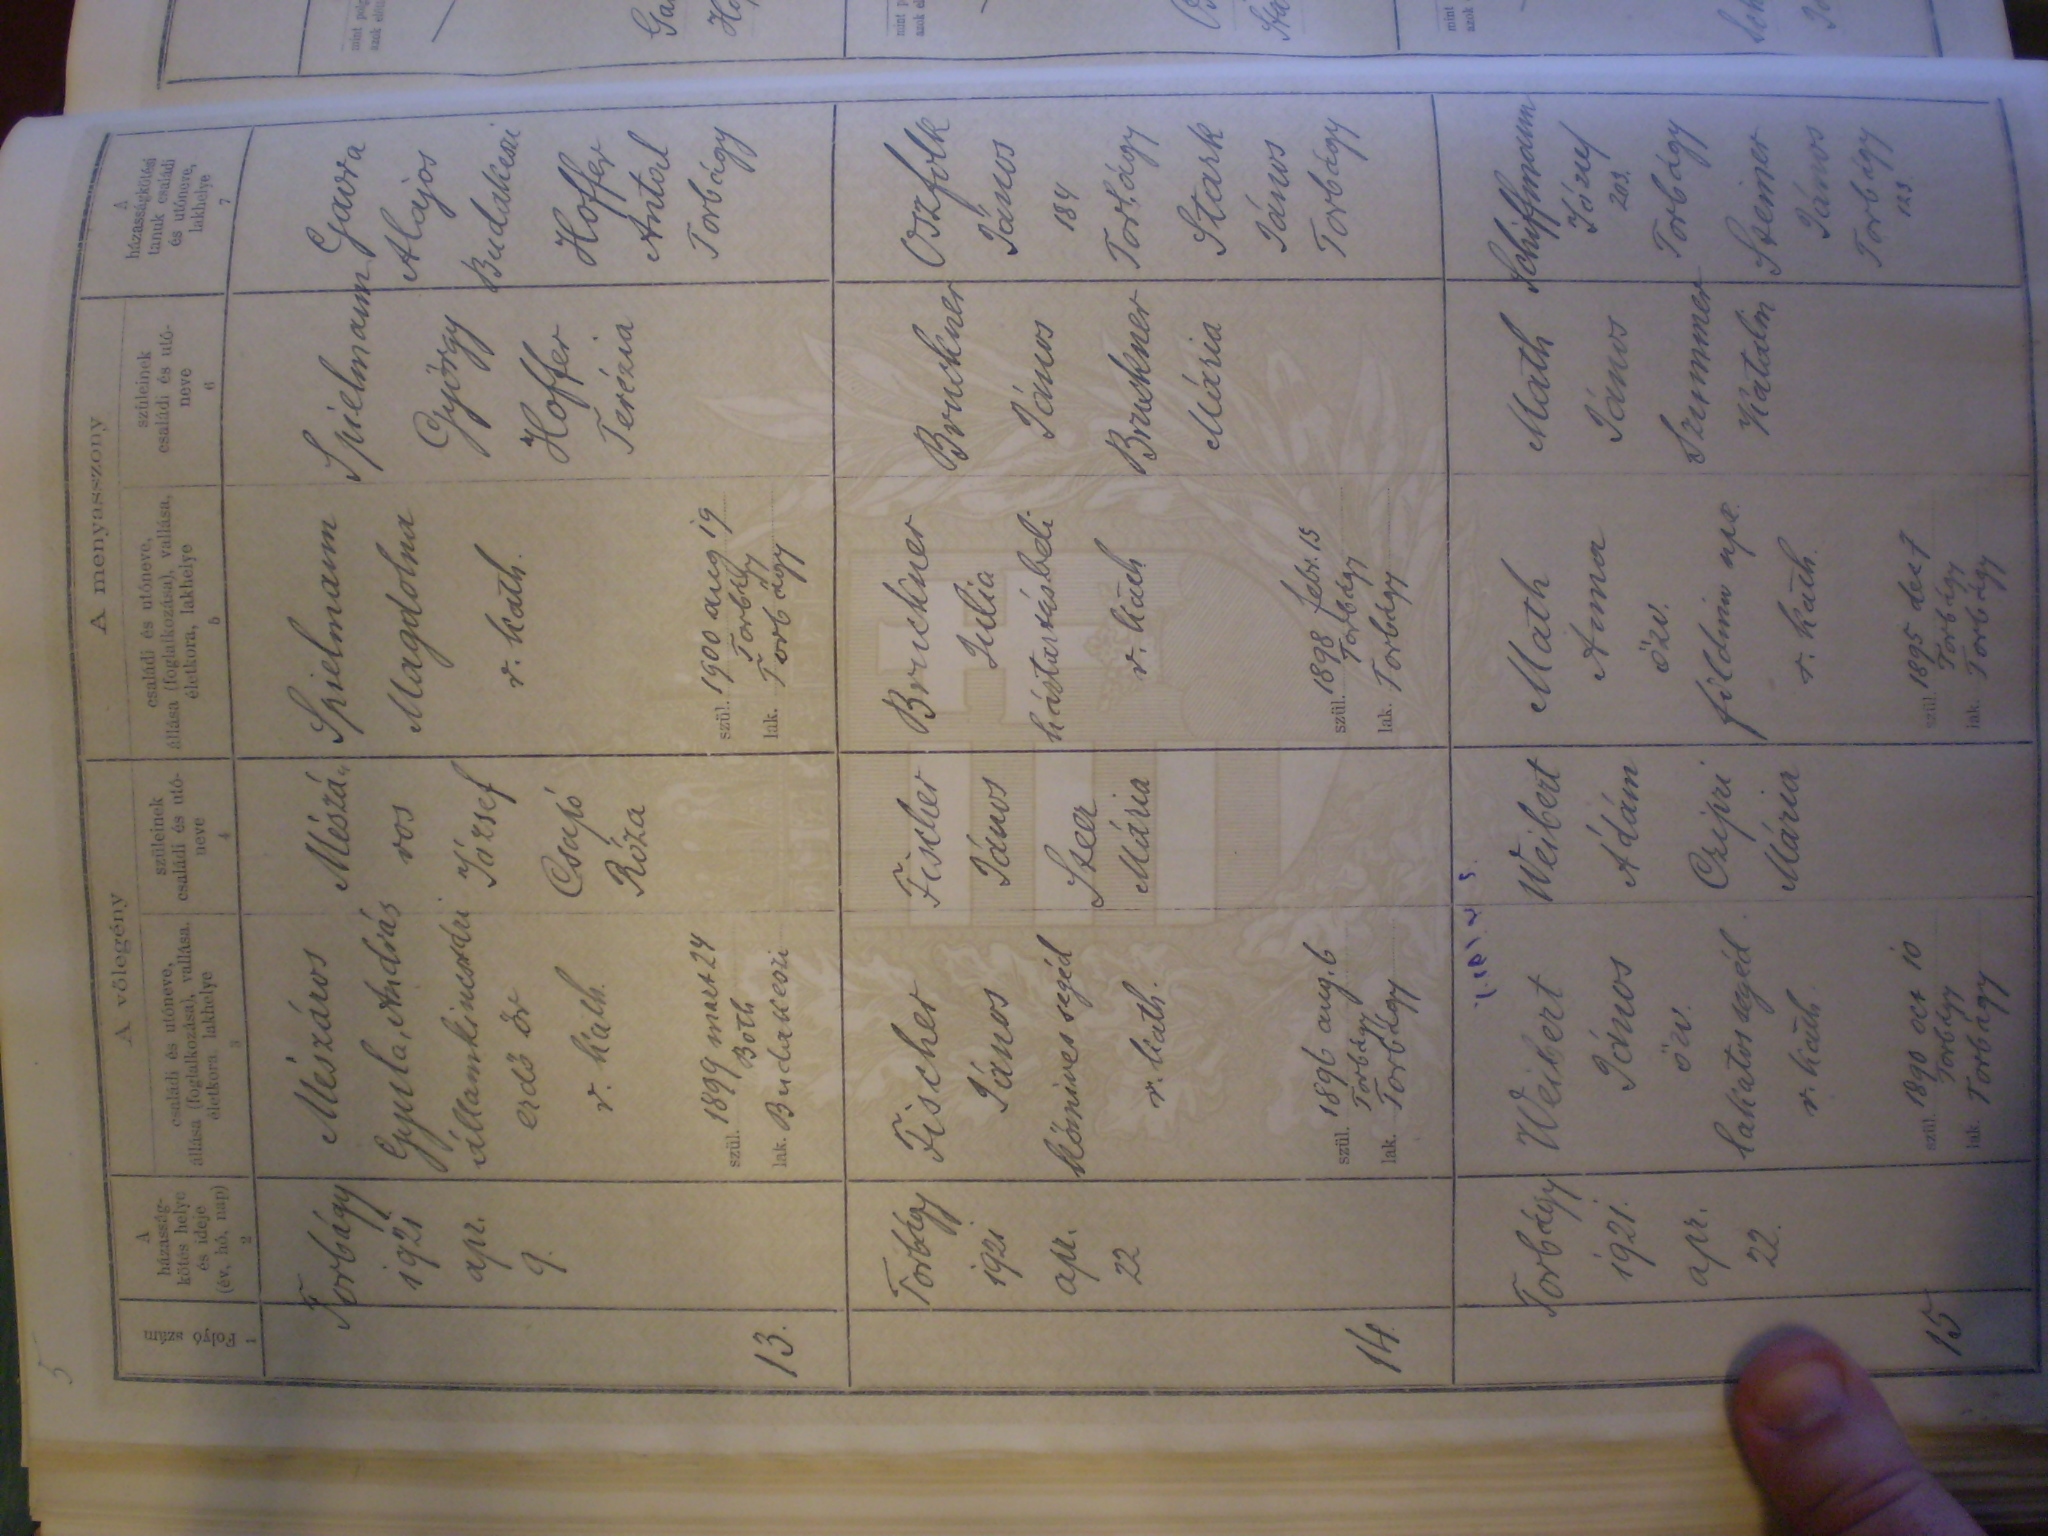 5
A vőlegény
A menyasszony
Folyó szám
A házasság-
kötés helye
és ideje
(év, hó, nap)
családi és utóneve,
állása (foglalkozása), vallása,
életkora, lakhelye
szüleinek
családi és utó-
neve
családi és utóneve,
állása (foglalkozása), vallása,
életkora, lakhelye
szüleinek
családi és utó-
neve
A
házasságkötési
tanuk családi
és utóneve,
lakhelye
1
2
3
4
5
6
7
13.
Torbágy
1921
apr.
9.
Mészáros
Gyula, András
államkincstári
erdő őr
r. kath.
szül. 1899 márc 24
Both
lak. Budakeszi
Mészá-
ros
József
Csapó
Róza
Spielmann
Magdolna
r. kath.
szül. 1900 aug 19
Torbágy
lak. Torbágy
Spielmann
György
Hoffer
Terézia
Gavra
Alajos
Budakeszi
Hoffer
Antal
Torbágy
14.
Torbágy
1921
apr.
22
Fischer
János
kőmives segéd
r. kath.
szül. 1896 aug. 6
Torbágy
lak. Torbágy
Fischer
János
Steer
Mária
Bruckner
Julia
háztartásbeli
r. kath
szül. 1898 febr. 15
Torbágy
lak. Torbágy
Bruckner
János
Bruckner
Mária
Oszfolk
János
184
Torbágy
Stark
János
Torbágy
15
Torbágy
1921.
apr.
22.
Weibert
János
özv.
lakatos segéd
r. kath.
szül. 1890 oct 10
Torbágy
lak. Torbágy
Weibert
Ádám
Czipri
Mária
Math
Anna
özv.
r. kath.
szül. 1895 dec 7
Torbágy
lak. Torbágy
Math
János
Szummer
Katalin
Schiffmann
József
203.
Torbágy
Steiner
János
Torbágy
123.